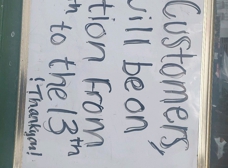 Customers,
will be on
tion From
h to the 13th
! Thankyou!